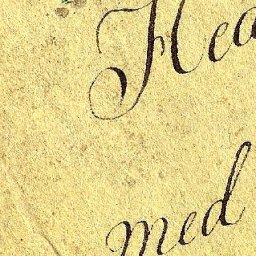 Hea
med